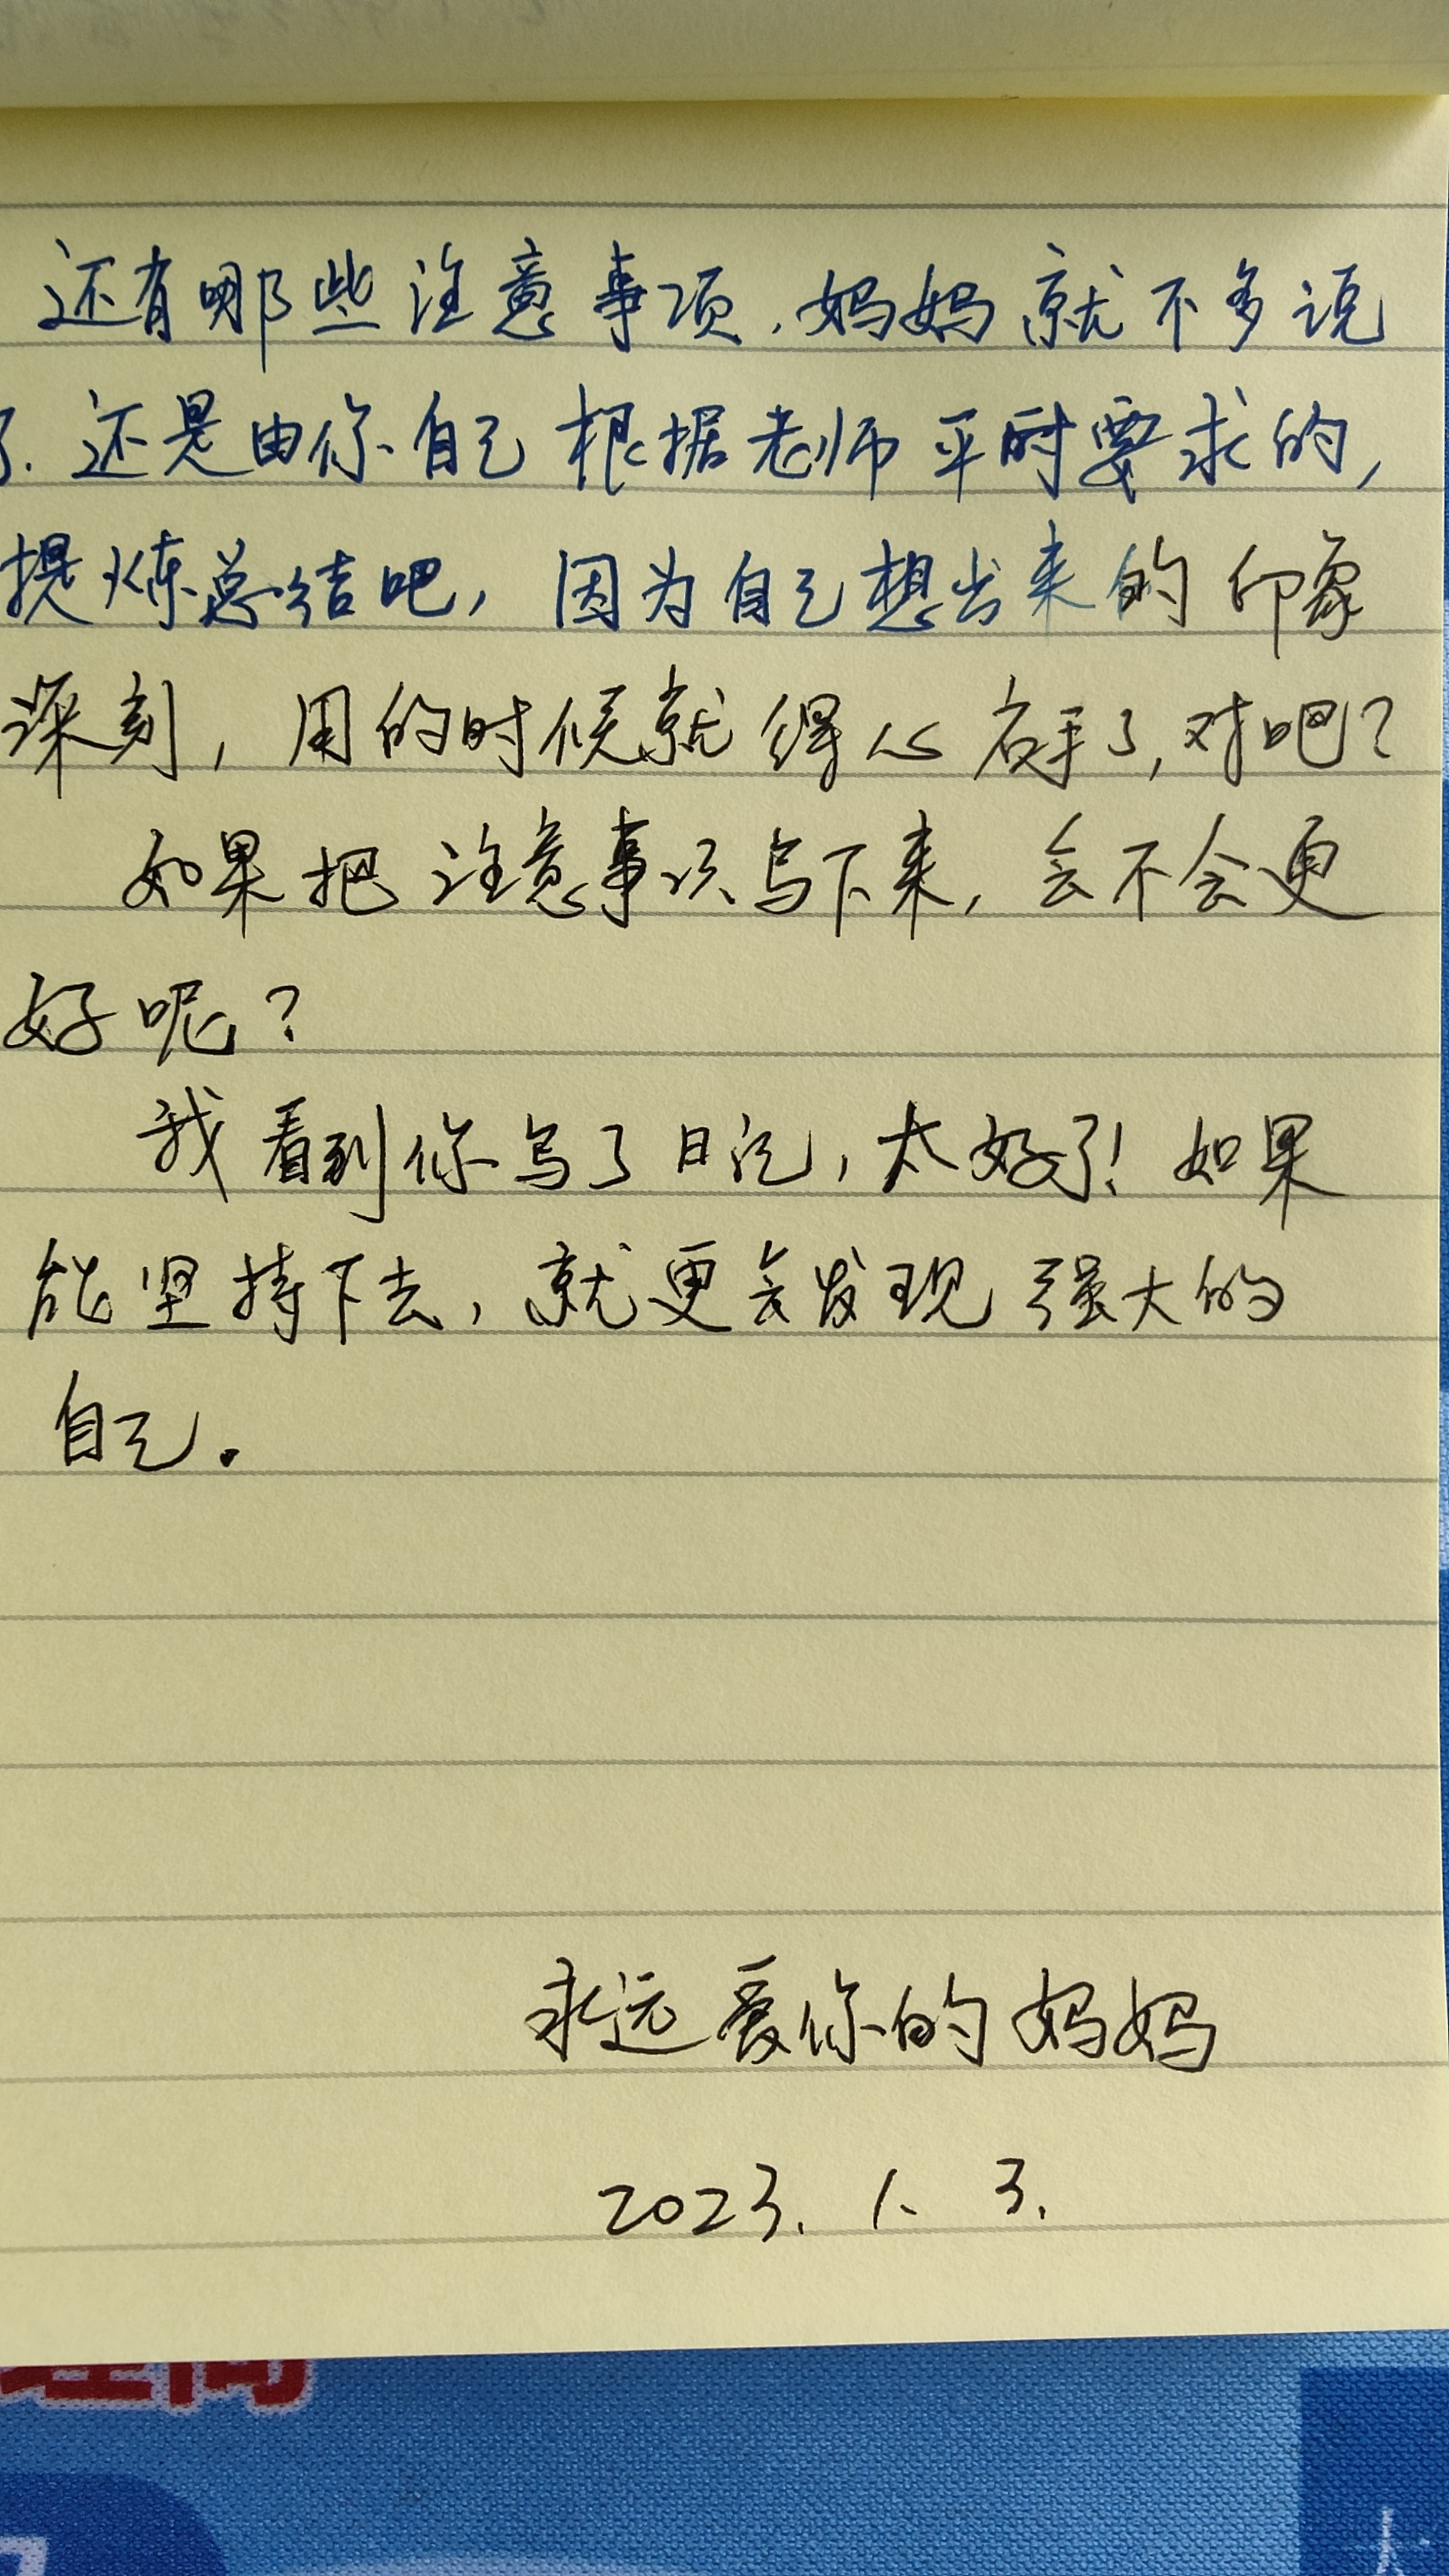 还有哪些注意事项，妈妈就不多说
了．还是由你自己根据老师平时要求的，
提炼总结吧，因为自己想出来的印象
深刻，用的时候就得心应手了，对吧？
如果把注意事项写下来，会不会更
好呢？
我看到你写了日记，太好了！如果
能坚持下去，就更会发现强大的
自己。
永远爱你的妈妈
2023. 1. 3.